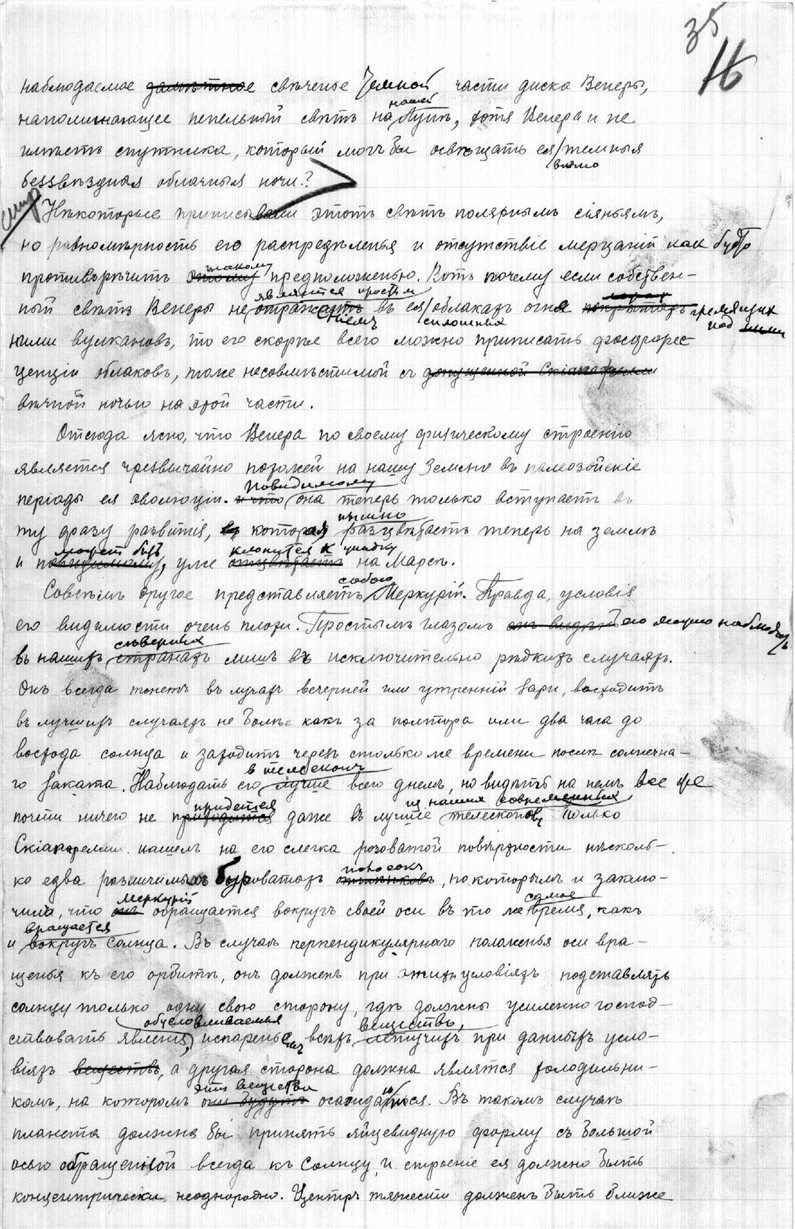 35
16
наблюдаемое свѣченье темной части диска Венеры,
напоминающее пепельный свѣтъ на нашей Лунѣ, хотя Венера и не
имѣетъ спутника, который могъ бы освѣщать ея темныя
беззвѣздныя облачныя ночи?
Нѣкоторые приписывали этотъ свѣтъ полярнымъ сіяньямъ,
но равномѣрность его распредѣленья и отсутствіе мерцаній какъ будто
противорѣчитъ такому предположенью. Вотъ почему если собствен-
ный свѣтъ Венеры не является простымъ въ ея сплошныхъ облакахъ огня гремящихъ
подъ ними вулкановъ, то его скорѣе всего можно приписать фосфорес-
ценціи облаковъ, тоже несовмѣстимой съ
вѣчной ночью на этой части.
Отсюда ясно, что Венера по своему физическому строенію
является чрезвычайно похожей на нашу Землю въ палеозойскіе
періоды ея эволюціи. Повидимому она теперь только вступаетъ въ
ту фазу развитія, которая пышно разцвѣтаетъ теперь на землѣ
и можетъ быть, уже клонится къ упадку на Марсѣ.
Совсѣмъ другое представляетъ собою Меркурій. Правда, условія
его видимости очень плохи. Простымъ глазомъ его можно наблюдать
въ нашихъ сѣверныхъ странахъ лишь въ исключительно рѣдкихъ случаяхъ.
Онъ всегда тонетъ въ лучахъ вечерней или утренній зари, восходитъ
въ лучшихъ случаяхъ не болѣе какъ за полтора или два часа до
восхода солнца и заходитъ черезъ столько же времени послѣ солнечна-
го заката. Наблюдать его въ телескопъ лучше всего днемъ, но видѣть на немъ все же
почти ничего не придется даже въ лучше изъ нашихъ современныхъ телескоповъ. Только
Скіапарелли нашелъ на его слегка розоватой поверхности нѣсколь-
ко едва различимыхъ буроватыхъ полосокъ, по которымъ и заклю-
чилъ, что Меркурій обращается вокругъ своей оси въ то же самое время, какъ
и вращается вокругъ Солнца. Въ случаѣ перпендикулярнаго положенья оси вра-
щенья къ его орбитѣ, онъ долженъ при этихъ условіяхъ подставлять
солнцу только одну свою сторону, гдѣ должны усиленно господ-
ствовать явленія, обусловливаемыя испареньемъ всѣхъ веществъ, летучихъ при данныхъ усло-
віяхъ, а другая сторона должна являтся холодильни-
комъ, на которомъ эти вещества осаждаются. Въ такомъ случаѣ
планета должна бы принять яйцевидную форму съ большой
осью обращенной всегда къ Солнцу, и строеніе ея должно быть
концентрически неоднородно. Центръ тяжести долженъ быть ближе